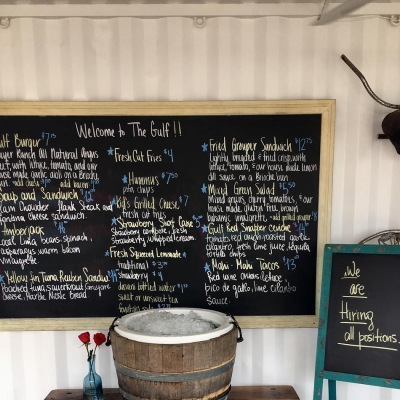 Welcome to The Gulf!!
Gulf Burger $7.75
Ranch All Natural Angus
lettuce, tomato, and our
house made garlic aioli on a Brioche
bun add cheese add bacon
Soup and Sandwich
Clam Chowder Flank Steak and
Fontina cheese sandwich
asparagus warm bacon
vinaigrette
Yellow fin Tuna Reuben Sandwich
Poached tuna, sauerkraut,
cheese, Marble Music Bread
Fresh Cut Fries $4
Hummus $7.50
pita chips
Kid's Grilled Cheese $7
fresh cut fries
Strawberry Short Cake $5
Strawberry compote, fresh
strawberry, whipped cream
Fresh Squeezed Lemonade
traditional $3.50
Strawberry $4
sweet or unsweet tea
fountain soda
Fried Grouper Sandwich $12.75
Lightly breaded & fried crisp, with
lettuce, tomato, & our house made lemon
aioli sauce on a Brioche bun
Mixed Green Salad
Mixed greens, cherry tomatoes, & our
house made, gluten free, brown
Balsamic vinaigrette. add grilled grouper
Gulf Red Snapper ceviche
tomatoes, red onion, roasted garlic
cilantro, fresh lime juice, tequila
tortilla chips
Mahi-Mahi Tacos $13
Red wine onions, lettuce
pico de gallo, lime cilantro
sauce
We
are
Hiring
all positions.